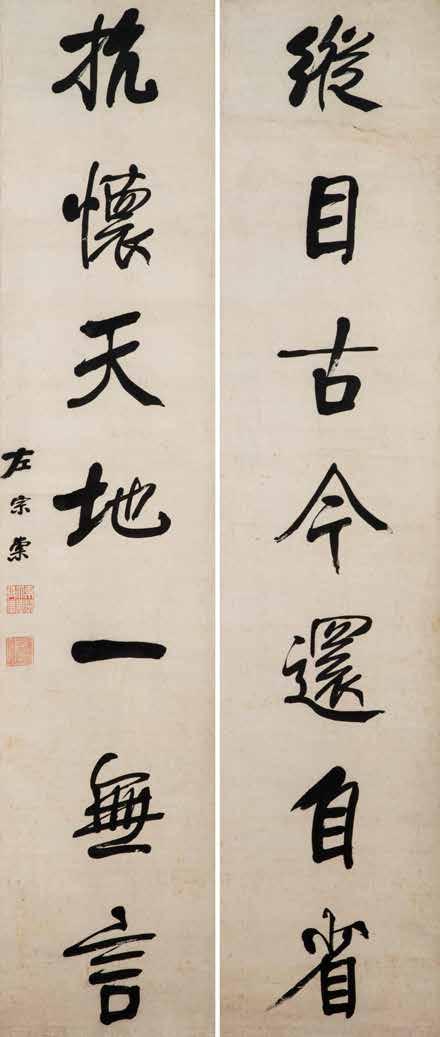 縱目古今還自省
抗懷天地一無言
左宗棠